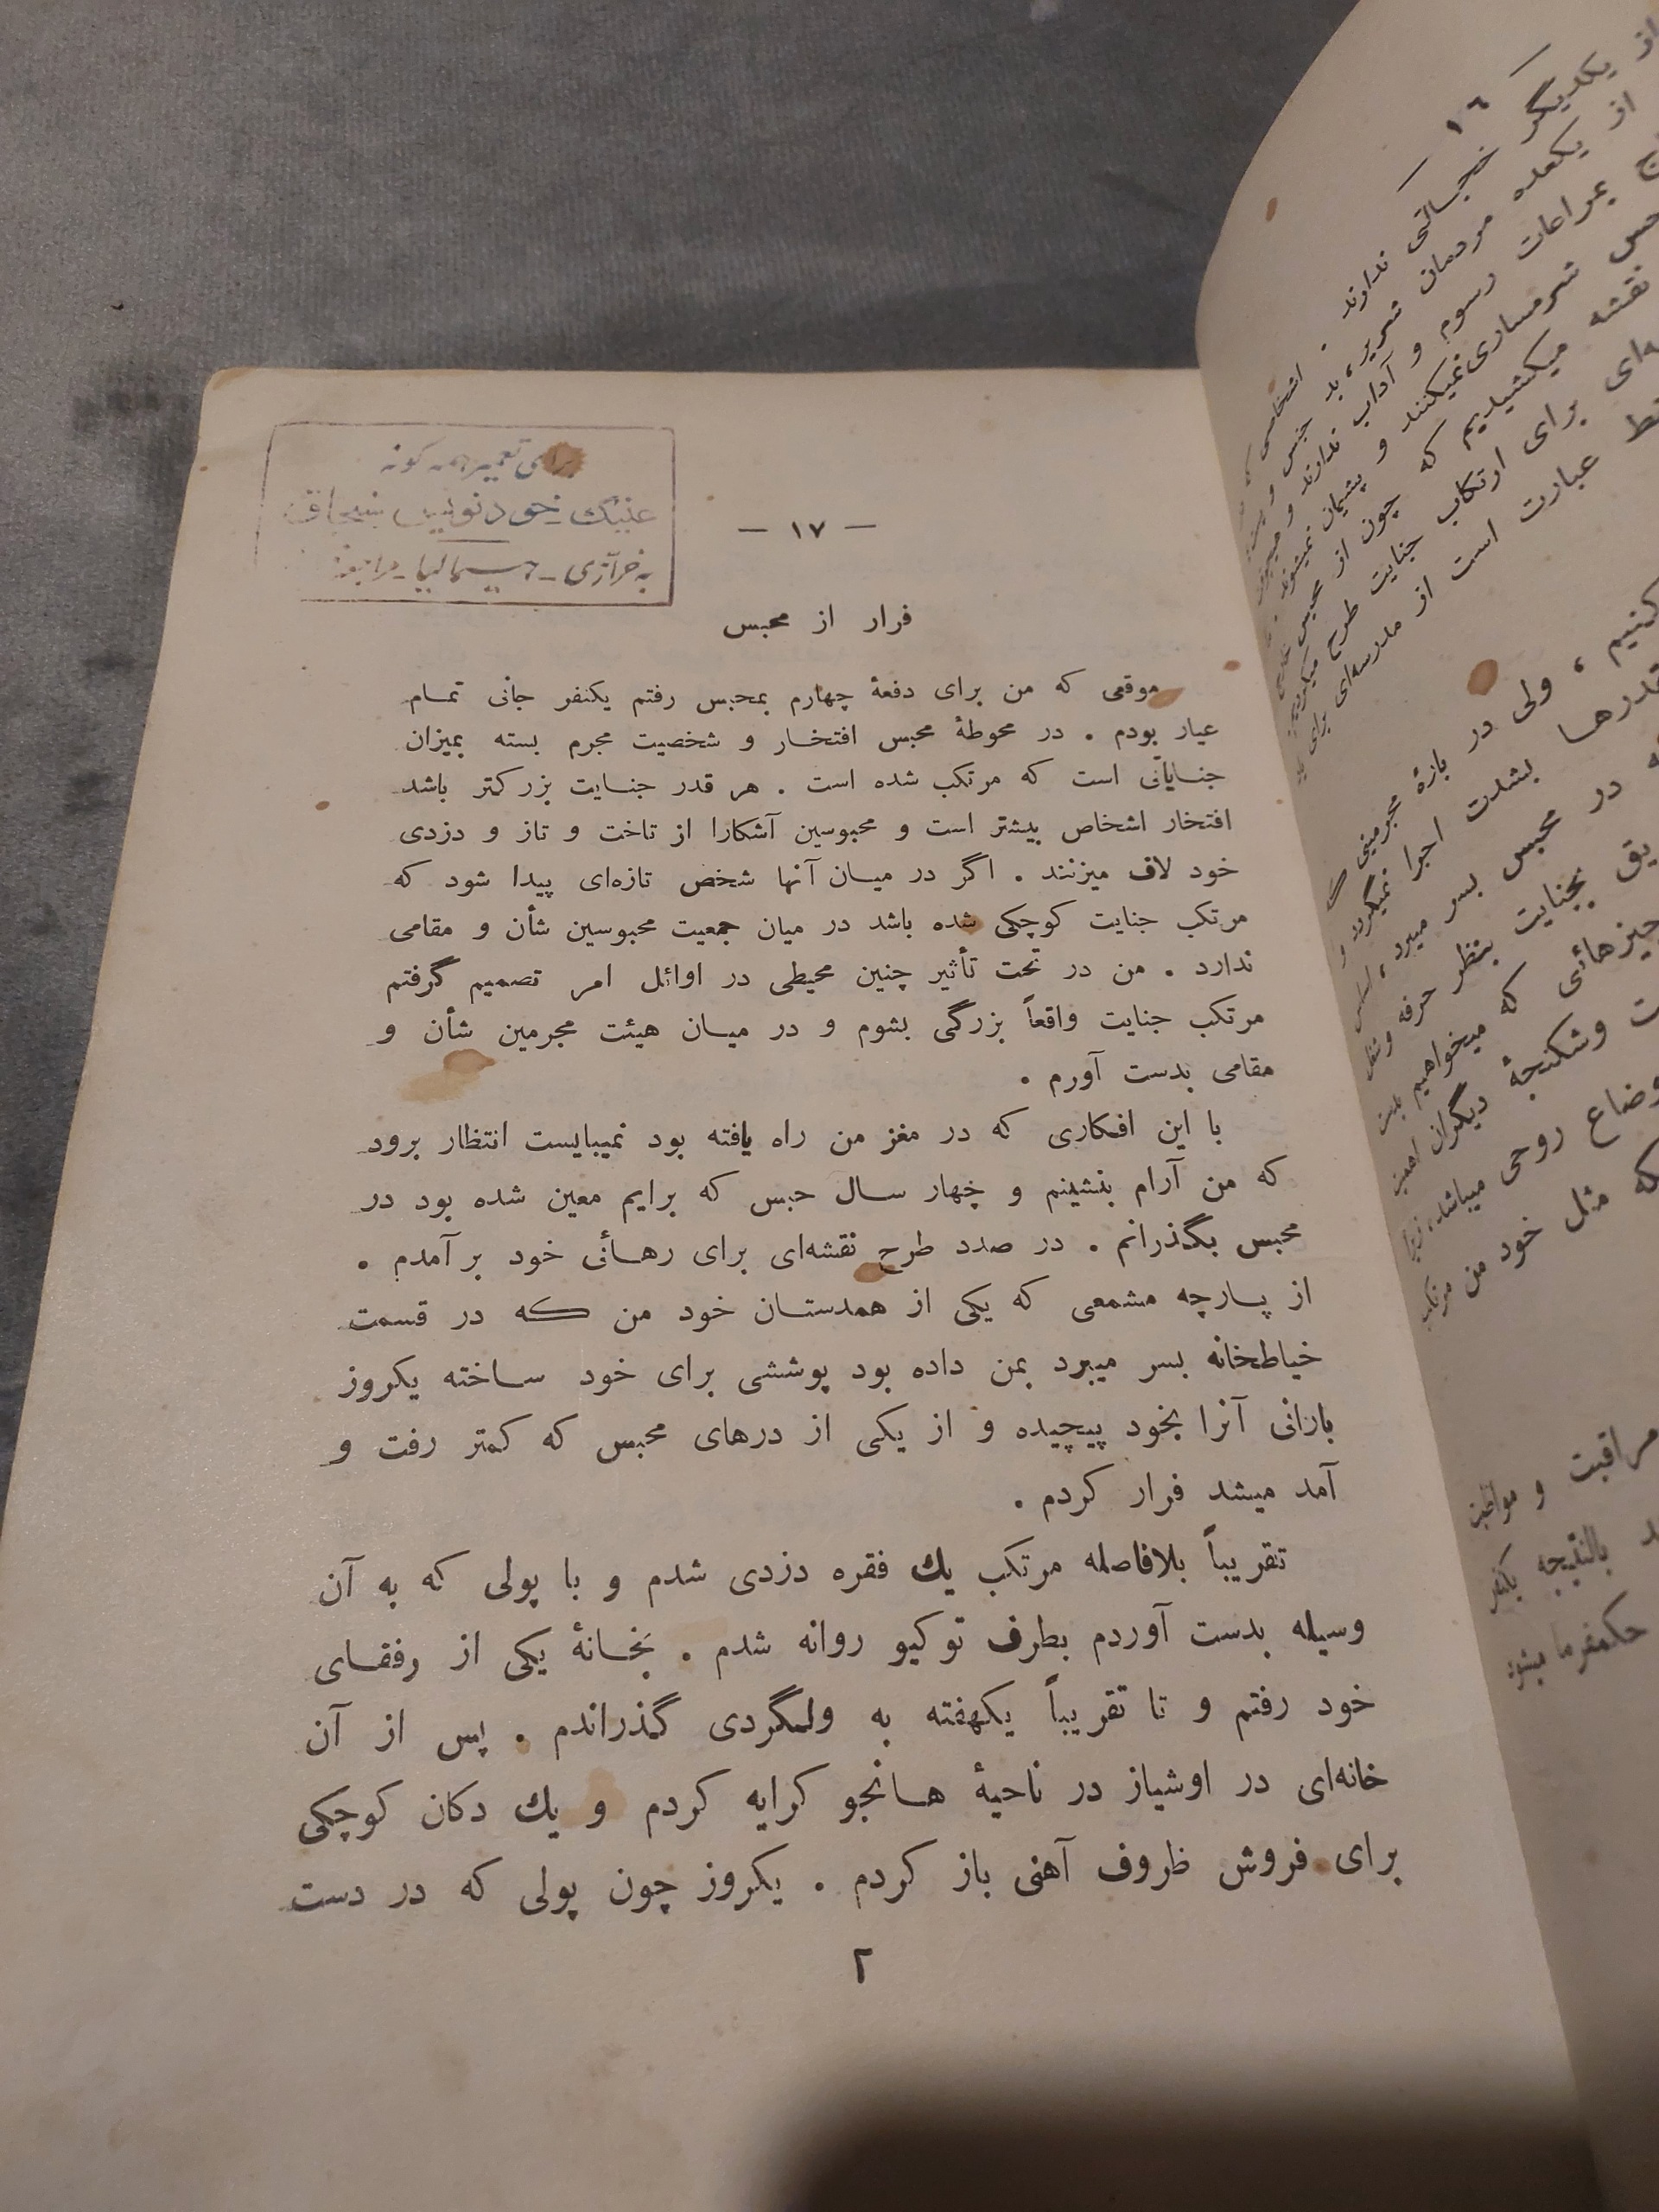 برای تعمیر همه گونه
عینک - خودنویس -
به خرازی - - مراجعه
— ۱۷ —
فرار از محبس
موقعی که من برای دفعهٔ چهارم بمحبس رفتم یکنفر جانی تمام
عیار بودم . در محوطهٔ محبس افتخار و شخصیت مجرم بسته بمیزان
جنایاتی است که مرتکب شده است . هر قدر جنایت بزرگتر باشد
افتخار اشخاص بیشتر است و محبوسین آشکارا از تاخت و تاز و دزدی
خود لاف میزنند . اگر در میان آنها شخص تازه‌ای پیدا شود که
مرتکب جنایت کوچکی شده باشد در میان جمعیت محبوسین شأن و مقامی
ندارد . من در تحت تأثیر چنین محیطی در اوائل امر تصمیم گرفتم
مرتکب جنایت واقعاً بزرگی بشوم و در میان هیئت مجرمین شأن و
مقامی بدست آورم .
با این افکاری که در مغز من راه یافته بود نمیبایست انتظار برود
که من آرام بنشینم و چهار سال حبس که برایم معین شده بود در
محبس بگذرانم . در صدد طرح نقشه‌ای برای رهائی خود بر آمدم .
از پارچه مشمعی که یکی از همدستان خود من که در قسمت
خیاطخانه بسر میبرد بمن داده بود پوششی برای خود ساخته یکروز
بارانی آنرا بخود پیچیده و از یکی از درهای محبس که کمتر رفت و
آمد میشد فرار کردم .
تقریباً بلافاصله مرتکب یك فقره دزدی شدم و با پولی که به آن
وسیله بدست آوردم بطرف توکیو روانه شدم . بخانهٔ یکی از رفقای
خود رفتم و تا تقریباً یکهفته به ولگردی گذراندم . پس از آن
خانه‌ای در اوشیاز در ناحیهٔ هانجو کرایه کردم و یك دکان کوچکی
برای فروش ظروف آهنی باز کردم . یکروز چون پولی که در دست
۲
— ۱٦ —
از یکدیگر خجالتی ندارند . اشخاصی
از یکعده مردمان شریر، بد جنس و
بمراعات رسوم و آداب ندارند و
شرمساری نمیکنند و پشیمان نمیشوند .
نقشه میکشیدیم که چون از محبس
برای ارتکاب جنایت طرح میکردیم
عبارت است از مدرسه‌ای برای
کنیم ، ولی در بارهٔ مجرمینی
بشدت اجرا نمیگردد و
در محبس بسر میبرد ،
بجنایت بنظر حرفه و شغل
چیزهائی که میخواهیم بدست
وشکنجهٔ دیگران اهمیت
روحی میباشد، زیرا
که مثل خود من مرتکب
مراقبت و مواظبت
بالنتیجه یکنفر
حکمفرما میشود